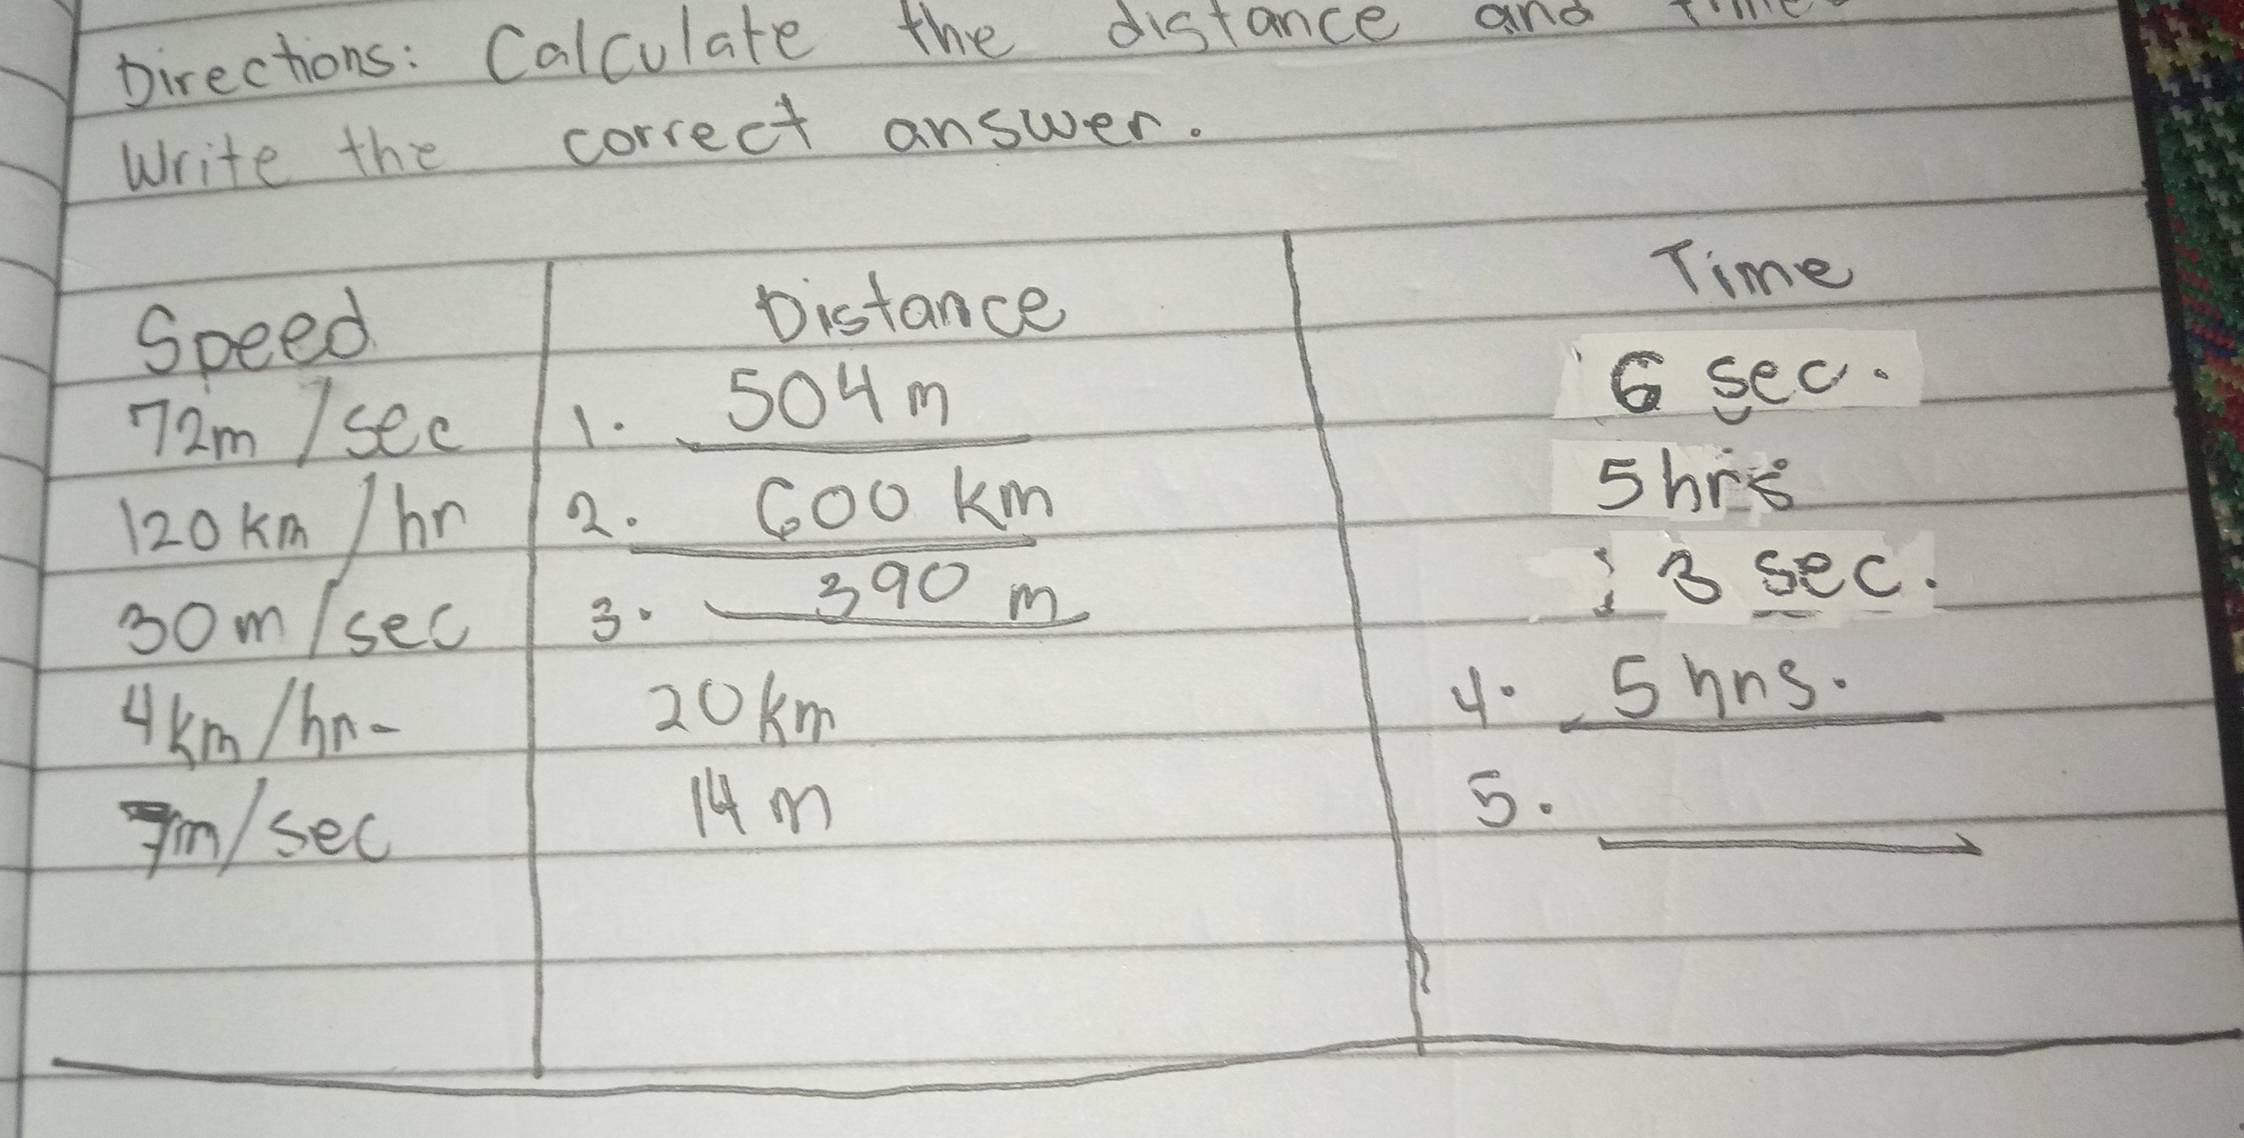 Directions: Calculate the distance and time
Write the correct answer.
Speed Distance Time
72m/sec 1. 504 m 6 sec.
120 km/hr 2. 600 km 5 hrs
30 m/sec 3. 390 m 3 sec.
4 km/hr- 20 km 4. 5 hrs.
7m/sec 14 m 5.